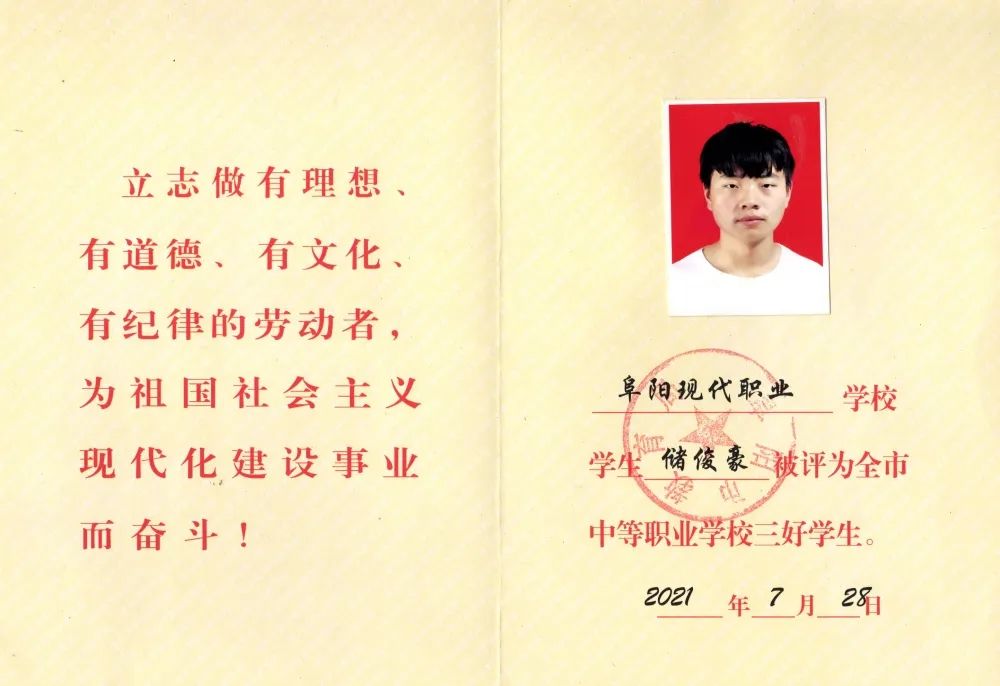 立志做有理想、
有道德、有文化、
有纪律的劳动者，
为祖国社会主义
现代化建设事业
而奋斗！
阜阳现代职业学校
学生储俊豪被评为全市
中等职业学校三好学生。
2021年7月28日